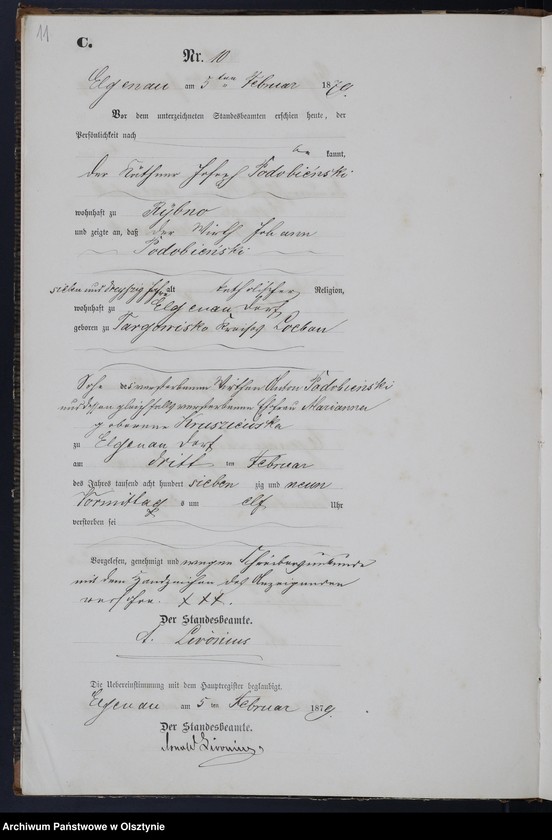 11
C.
Nr. 10
Elgenau am 5ten Februar 1879.
Vor dem unterzeichneten Standesbeamten erschien heute, der
Persönlichkeit nach
be kannt,
der Käthner Joseph Podobieński
wohnhaft zu Rybno
und zeigte an, daß der Wirth Johann
Podobieński
sieben und dreyßig Jahre alt katholischer Religion,
wohnhaft zu Elgenau Dorf
geboren zu Targowisko Kreises Loebau
Sohn des verstorbenen Wirthen Anton Podobieński
und dessen gleichfalls verstorbenen Ehefrau Marianna
geborenne
zu Elgenau Dorf
am dritt ten Februar
des Jahres tausend acht hundert sieben zig und neun
Vormittags um elf Uhr
verstorben sei
Vorgelesen, genehmigt und wegen Schreibensunkunde
mit dem Handzeichen des Anzeigenden
versehen. X X X.
Der Standesbeamte.
A. Livonius
Die Uebereinstimmung mit dem Hauptregister beglaubigt.
Elgenau am 5 ten Februar 1879.
Der Standesbeamte.
Arnold Livonius
Archiwum Państwowe w Olsztynie